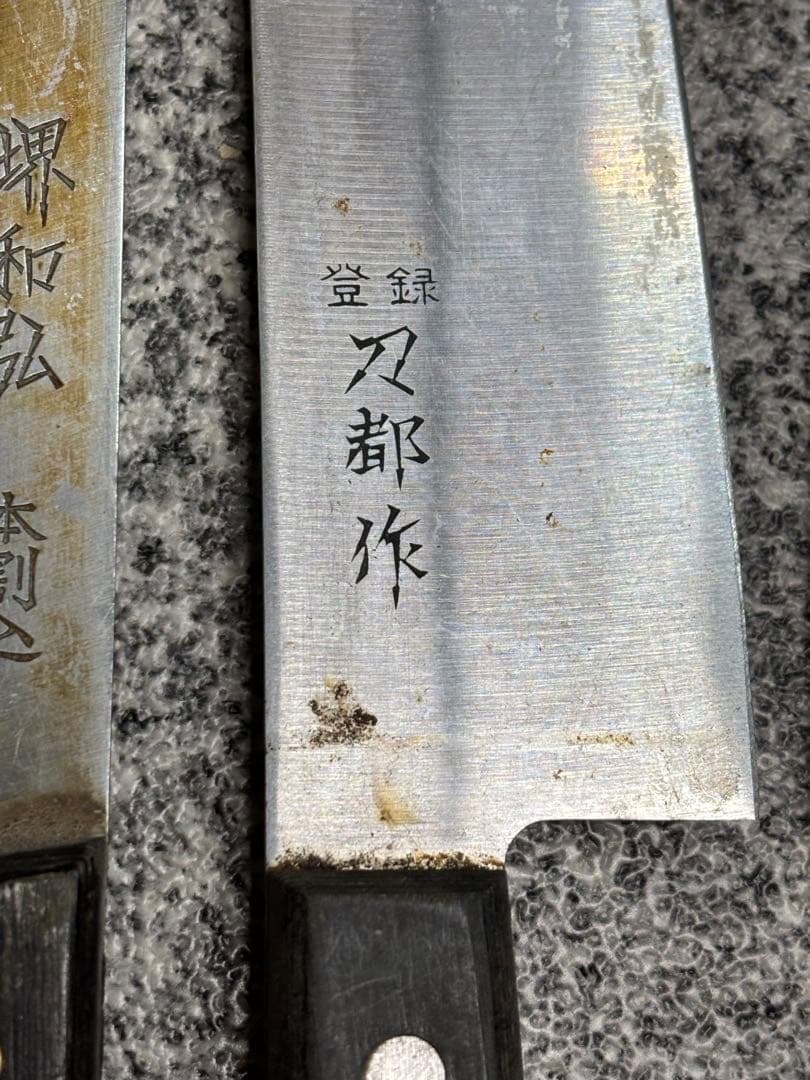 堺和弘
本割込
登録
刀都作